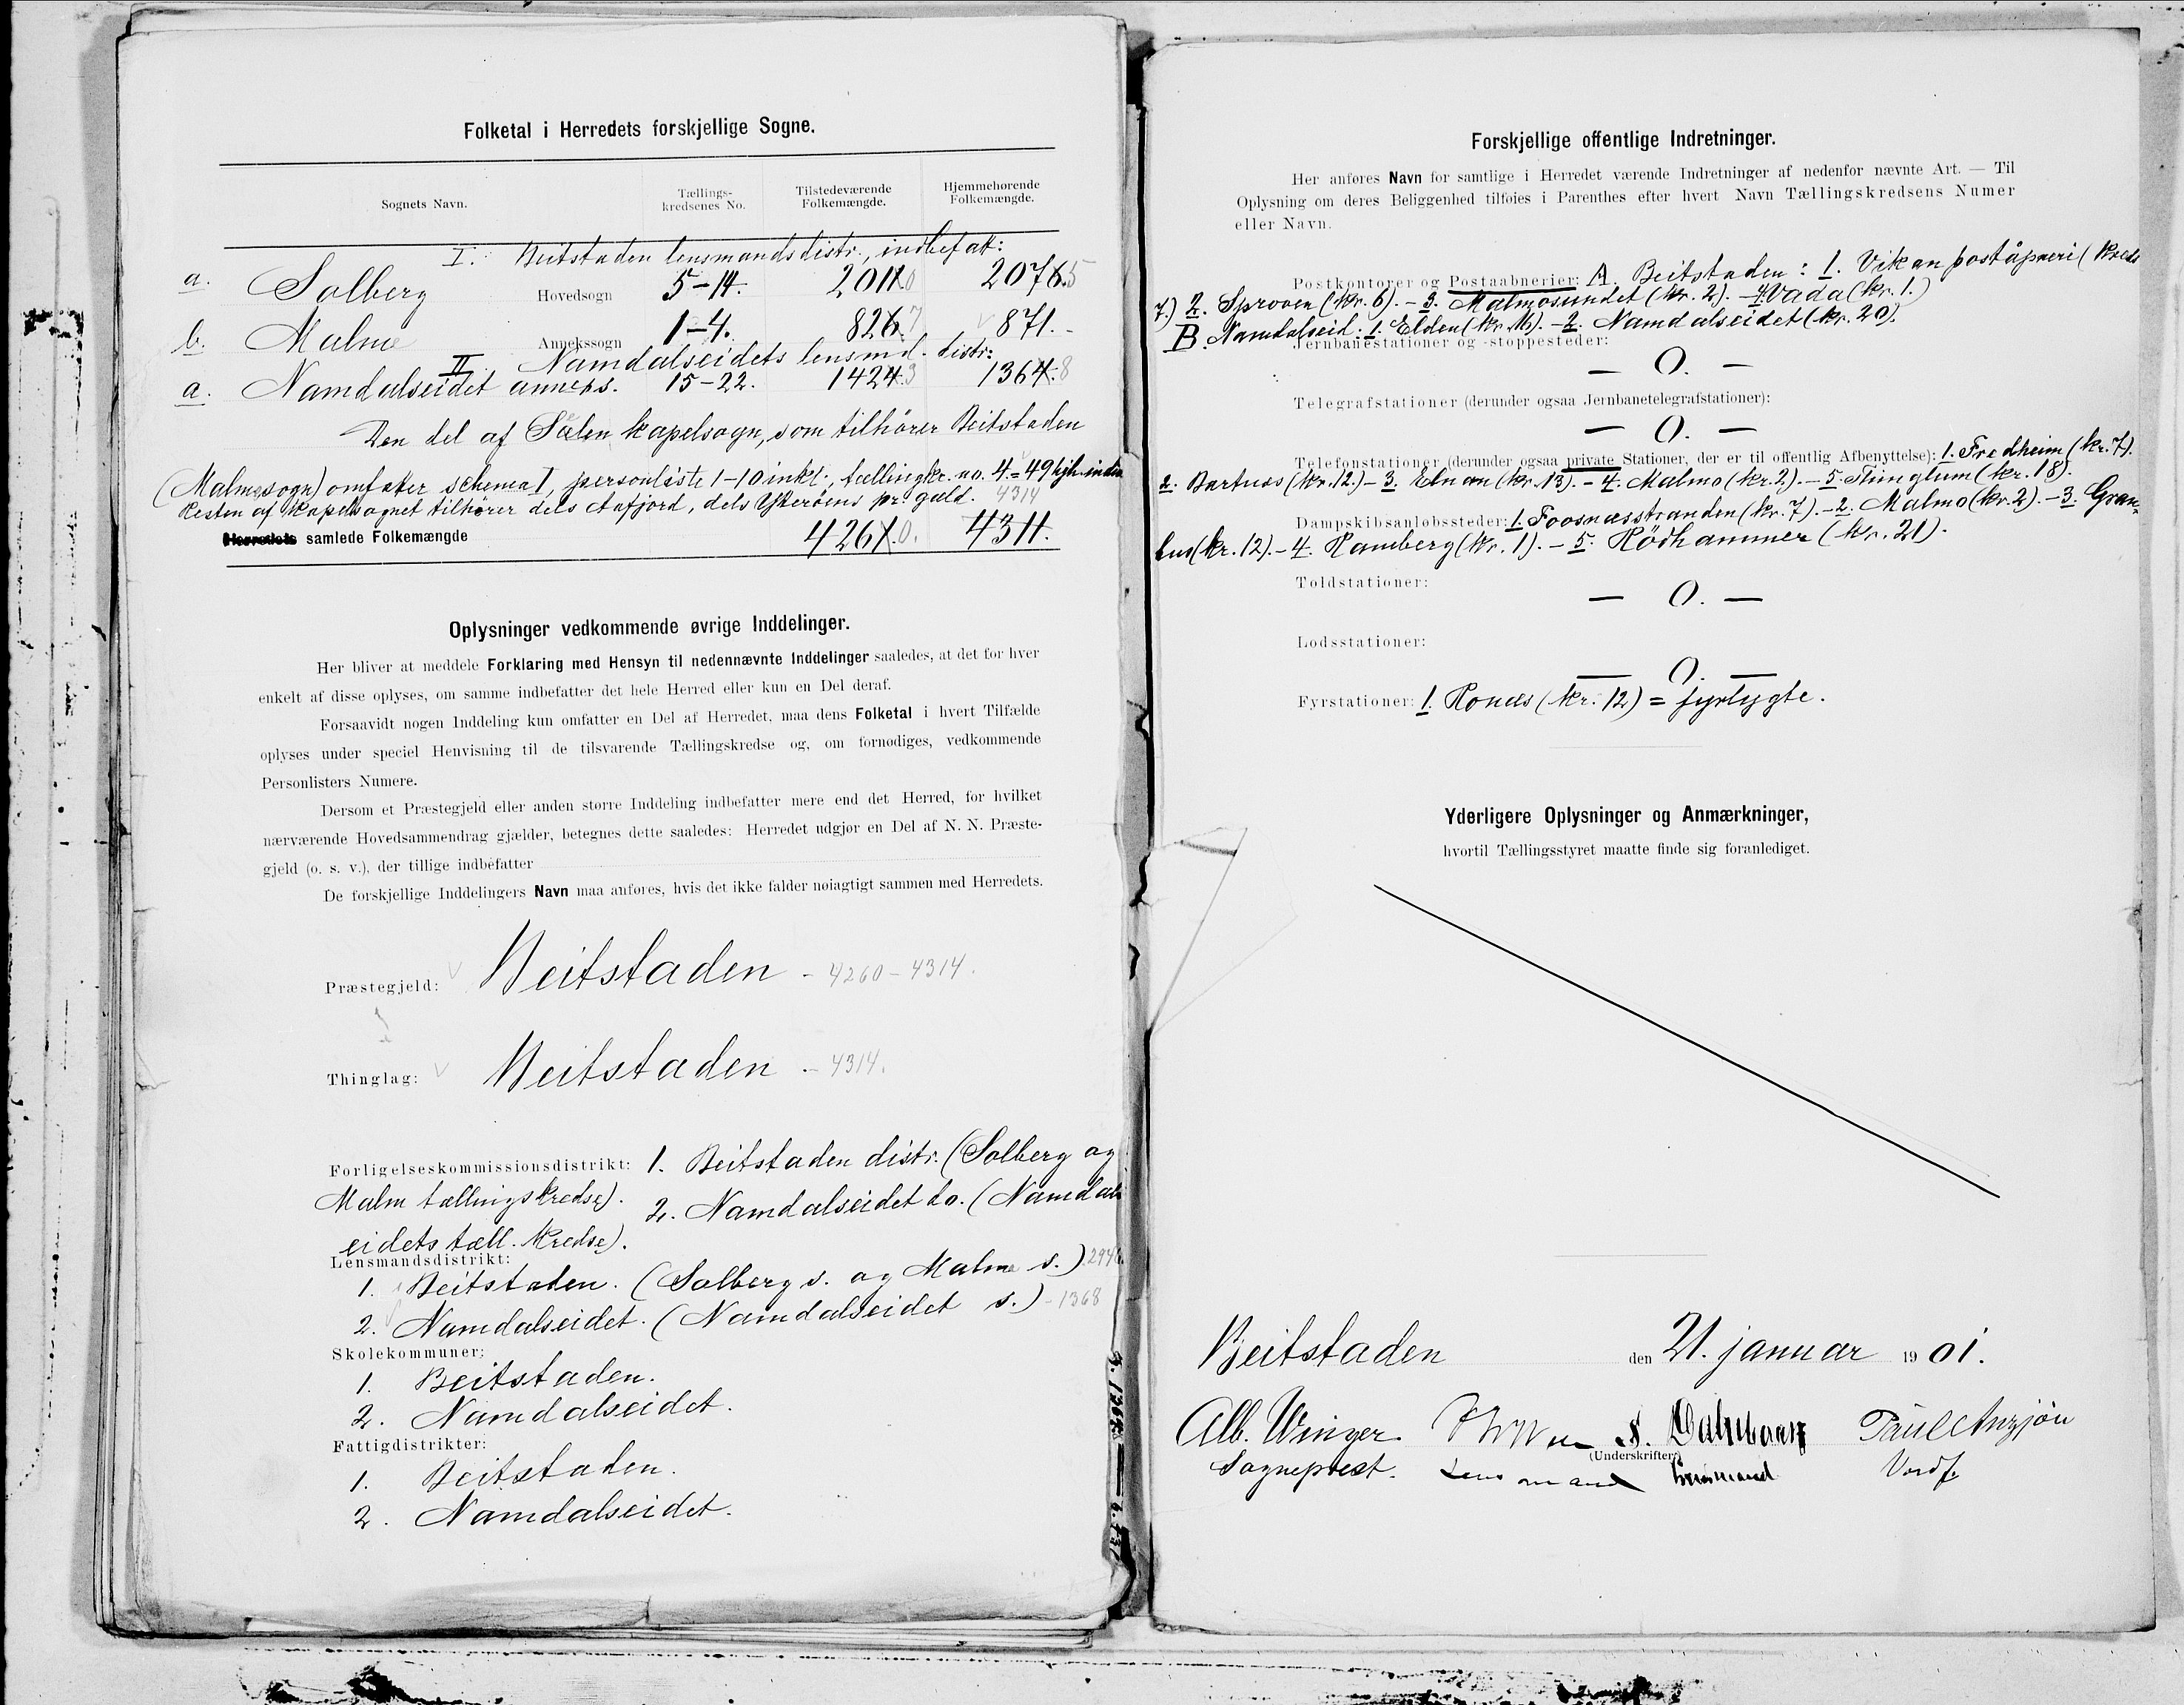 Folketal i Herredets forskjellige Sogne.
Sognets Navn.
Tællings-
kredsenes No.
Tilstedeværende
Folkemængde.
Hjemmehørende
Folkemængde.
I. Beitstaden lensmandsdistr., indbefatt:
a. Solberg Hovedsogn 5-14. 2010 2075
b. Malm Annekssogn 1-4. 827 871.
II Namdalseidets lensmd. distr:
a. Namdalseidet anneks. 15-22. 1423 1368
Den del af Sælen kapelsogn, som tilhører Beitstaden
(Malm sogn) omfatter schema I, personliste 1-10 inkl., tællingkr. no. 4 = 49 hjh.
Resten af kapelsognet tilhører dels Aafjord, dels Ytterøens pr. gæld. 4314
Herredets samlede Folkemængde 4260. 4311.
Oplysninger vedkommende øvrige Inddelinger.
Her bliver at meddele Forklaring med Hensyn til nedennævnte Inddelinger saaledes, at det for hver
enkelt af disse oplyses, om samme indbefatter det hele Herred eller kun en Del deraf.
Forsaavidt nogen Inddeling kun omfatter en Del af Herredet, maa dens Folketal i hvert Tilfælde
oplyses under speciel Henvisning til de tilsvarende Tællingskredse og, om fornødiges, vedkommende
Personlisters Numere.
Dersom et Præstegjeld eller anden større Inddeling indbefatter mere end det Herred, for hvilket
nærværende Hovedsammendrag gjælder, betegnes dette saaledes: Herredet udgjør en Del af N. N. Præste-
gjeld (o. s. v.), der tillige indbefatter
De forskjellige Inddelingers Navn maa anføres, hvis det ikke falder nøiagtigt sammen med Herredets.
Præstegjeld: Beitstaden - 4260 - 4314.
Thinglag: Beitstaden - 4314.
Forligelseskommissionsdistrikt: 1. Beitstaden distr. (Solberg og
Malm tællingskredse). 2. Namdalseidet do. (Namdals
eidets tæll. kredse).
Lensmandsdistrikt:
1. Beitstaden. (Solberg s. og Malm s.) 294
2. Namdalseidet. (Namdalseidet s.) - 1368
Skolekommuner:
1. Beitstaden.
2. Namdalseidet.
Fattigdistrikter:
1. Beitstaden.
2. Namdalseidet.
Forskjellige offentlige Indretninger.
Her anføres Navn for samtlige i Herredet værende Indretninger af nedenfor nævnte Art. — Til
Oplysning om deres Beliggenhed tilføies i Parenthes efter hvert Navn Tællingskredsens Numer
eller Navn.
Postkontorer og Postaabnerier: A. Beitstaden: 1. Vikan poståpneri (Kreds
7.) 2. Sprova (kr. 6). - 3. Malmosundet (kr. 2). - 4. Vada (kr. 1.)
B. Namdalseid: 1. Elden (kr. 16). - 2. Namdalseidet (kr. 20).
Jernbanestationer og -stoppesteder:
— 0. —
Telegrafstationer (derunder ogsaa Jernbanetelegrafstationer):
— 0. —
Telefonstationer (derunder ogsaa private Stationer, der er til offentlig Afbenyttelse): 1. Fredheim (kr. 7).
2. Bartnes (kr. 12.) - 3. Elnan (kr. 13). - 4. Malmo (kr. 2). - 5. (kr. 18).
Dampskibsanløbssteder: 1. Foosnæsstranden (kr. 7). - 2. Malmo (kr. 2). - 3. Gran-
hus (kr. 12). - 4. Ramberg (kr. 1). - 5. Rödhammer (kr. 21).
Toldstationer:
— 0. —
Lodsstationer:
— 0. —
Fyrstationer: 1. Honæs (kr. 12) = fyrlygte.
Yderligere Oplysninger og Anmærkninger,
hvortil Tællingsstyret maatte finde sig foranlediget.
Beitstaden den 21. januar 1901.
Alb. Winger.
(Underskrifter)
Sogneprest. Lensmand Lensmand Vordf.